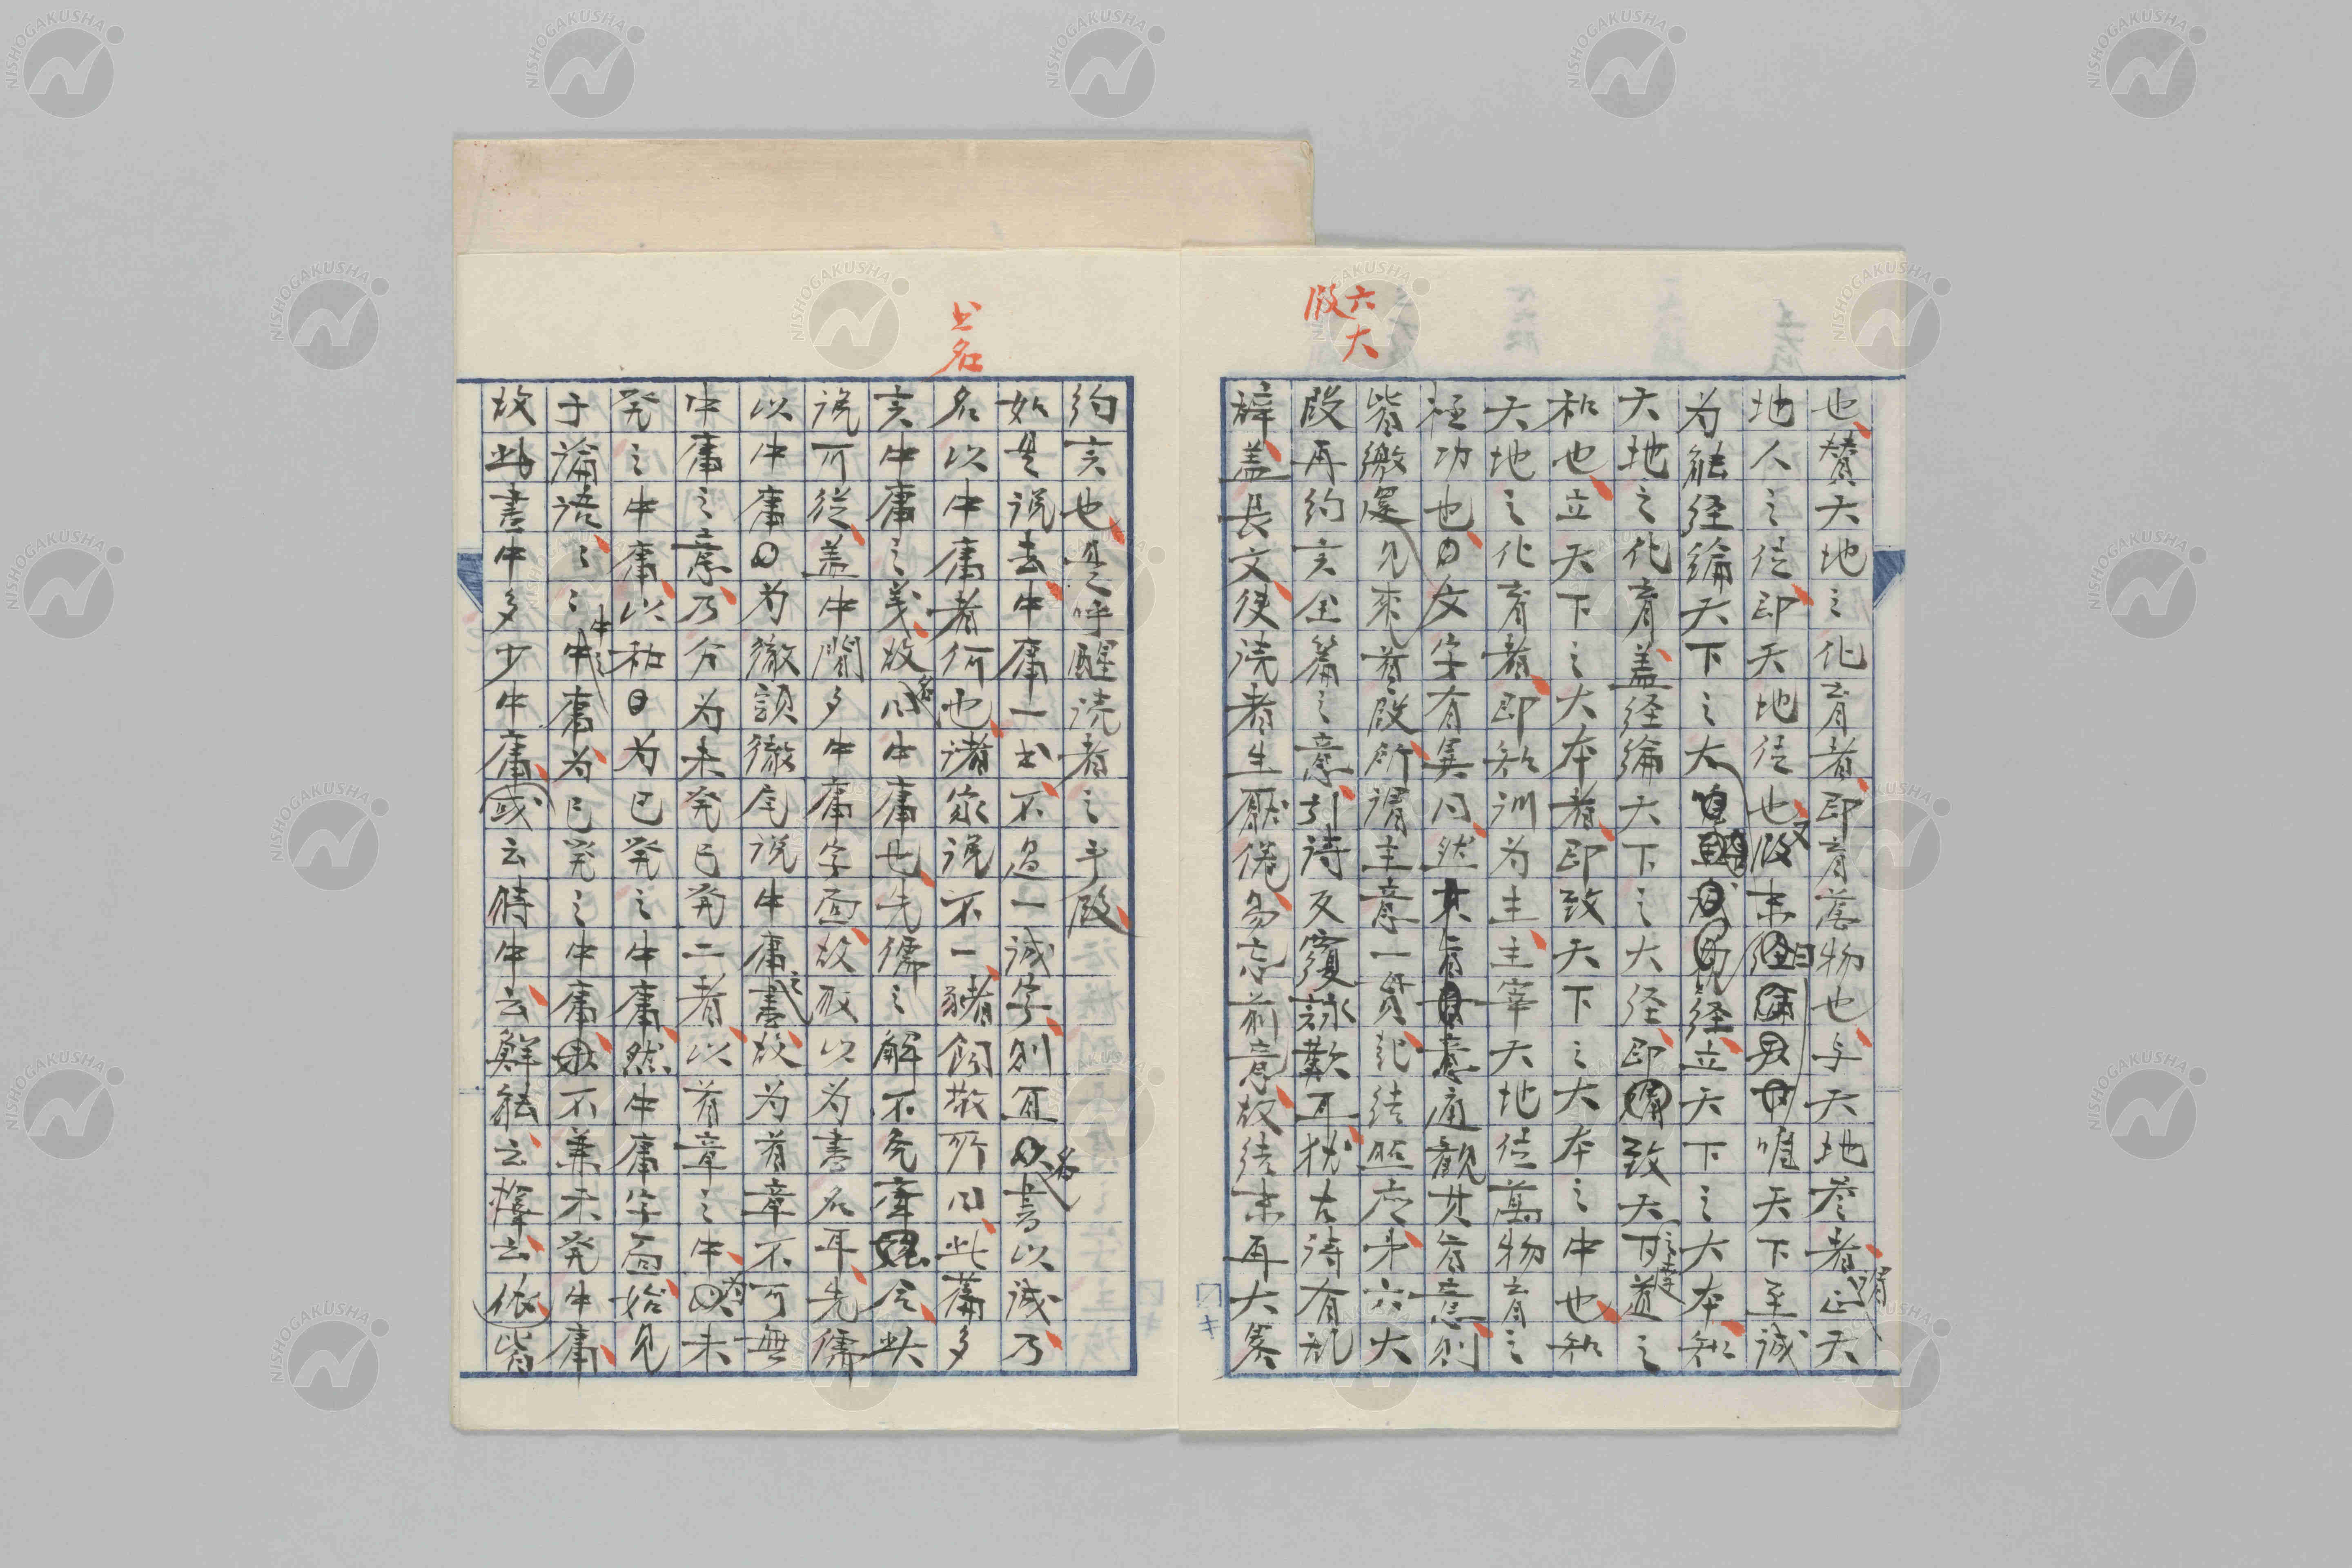 六大
段
也賛天地之化育者即育萬物也与天地参者謂正天
地人之位即天地位也又段末曰唯天下至誠
为能经綸天下之大经立天下之大本知
天地之化育盖经綸天下之大经即致天下之達道之
和也立天下之大本者即致天下之大本之中也知
天地之化育者即知訓为主主宰天地位萬物育之
極功也文字有異同然其旨意通観其旨意則
皆繳還見来首段所謂主意一貫起結照应第六大
段再約言全篇之意引詩反覆詠歎耳猶古詩有乱
辞盖長文使読者生厭倦易忘前意故結末再大筹
約言也是呼醒読者之手段
如是说去中庸一书不過一誠字則宜名書以誠乃
书名
名以中庸者何也諸家说不一諸飼敬所曰此篇多
言中庸之義故名曰中庸也先儒之解不免牽强合此
说可従盖中間多中庸字面故取以为書名耳先儒
以中庸为徹頭徹尾说中庸之書故为首章不可無
中庸之意乃分为未発已発二者以首章之中为未
発之中庸以和为已発之中庸然中庸字面始見
于論語之中庸为已発之中庸不兼未発中庸
故此書中多少中庸或云時中云鮮能云擇云依皆